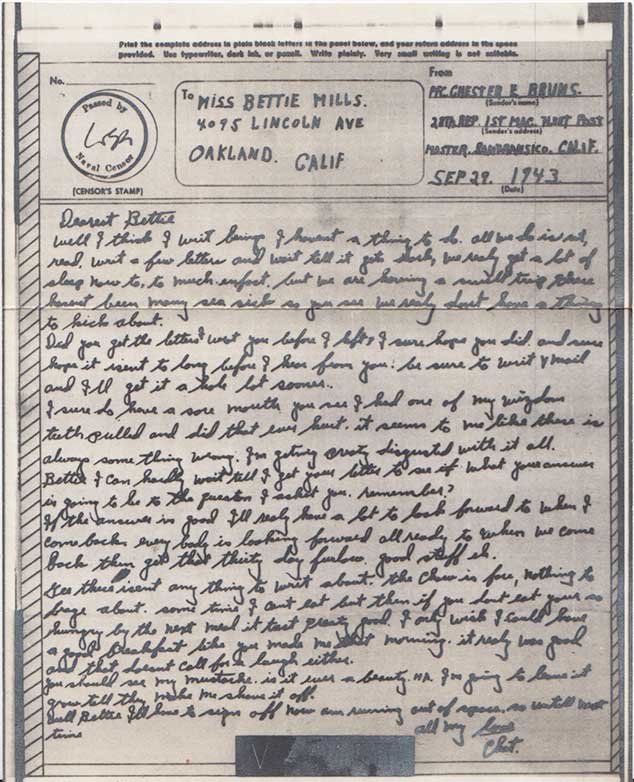 Print the complete address in plain block letters in the panel below, and your return address in the space
provided. Use typewriter, dark ink, or pencil. Write plainly. Very small writing is not suitable.
No.
Passed by
Naval Censor
(CENSOR'S STAMP)
To MISS BETTIE MILLS.
4095 LINCOLN AVE
OAKLAND. CALIF
From
PFC. CHESTER E BRUNS.
(Sender's name)
28TH REP. 1ST MAC. FLEET POST
(Sender's address)
MASTER. SANFRANSICO. CALIF.
SEP 29. 1943
(Date)
Dearest Bettie
Well I think I writ beings I havent a thing to do. all we do is sit,
read, writ a few letters and wait tell it gets dark, we realy get a lot of
sleep now to, to much enfact, but we are having a smooth trip there
havent been many sea sick so you see we realy dont have a thing
to kick about.
Did you get the letters I writ you before I left, I sure hope you did. and sure
hope it isent to long before I hear from you: be sure to writ V mail
and I'll get it a hole lot sooner.
I sure do have a sore mouth you see I had one of my wizdom
teeth pulled and did that ever hurt. it seems to me like there is
always some thing wrong. I'm geting prety disgusted with it all.
Bettie I can hardly wait tell I get your letter to see if what your answer
is going to be to the question I asket you. remember?
If the answer is good I'll realy have a lot to look forward to when I
come back. every body is looking forward all ready to when we come
back then get that thirty day furlow, good stuff eh.
Gee there isent any thing to writ about. the chow is fare, nothing to
brage about. some time I cant eat but then if you dont eat your so
hungry by the next meal it tast preaty good. I only wish I could have
a good breakfast like you made me that morning. it realy was good
and that doesnt call for a laugh either.
You should see my mustache. is it ever a beauty. HA. I'm going to leave it
grow tell they make me shave it off.
Well Bettie I'll have to sign off now am running out of space. so untell next
time
all my love
Chet.
V